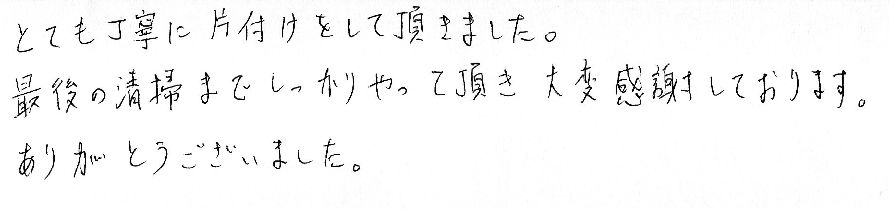 とても丁寧に片付けをして頂きました。
最後の清掃までしっかりやって頂き大変感謝しております。
ありがとうございました。